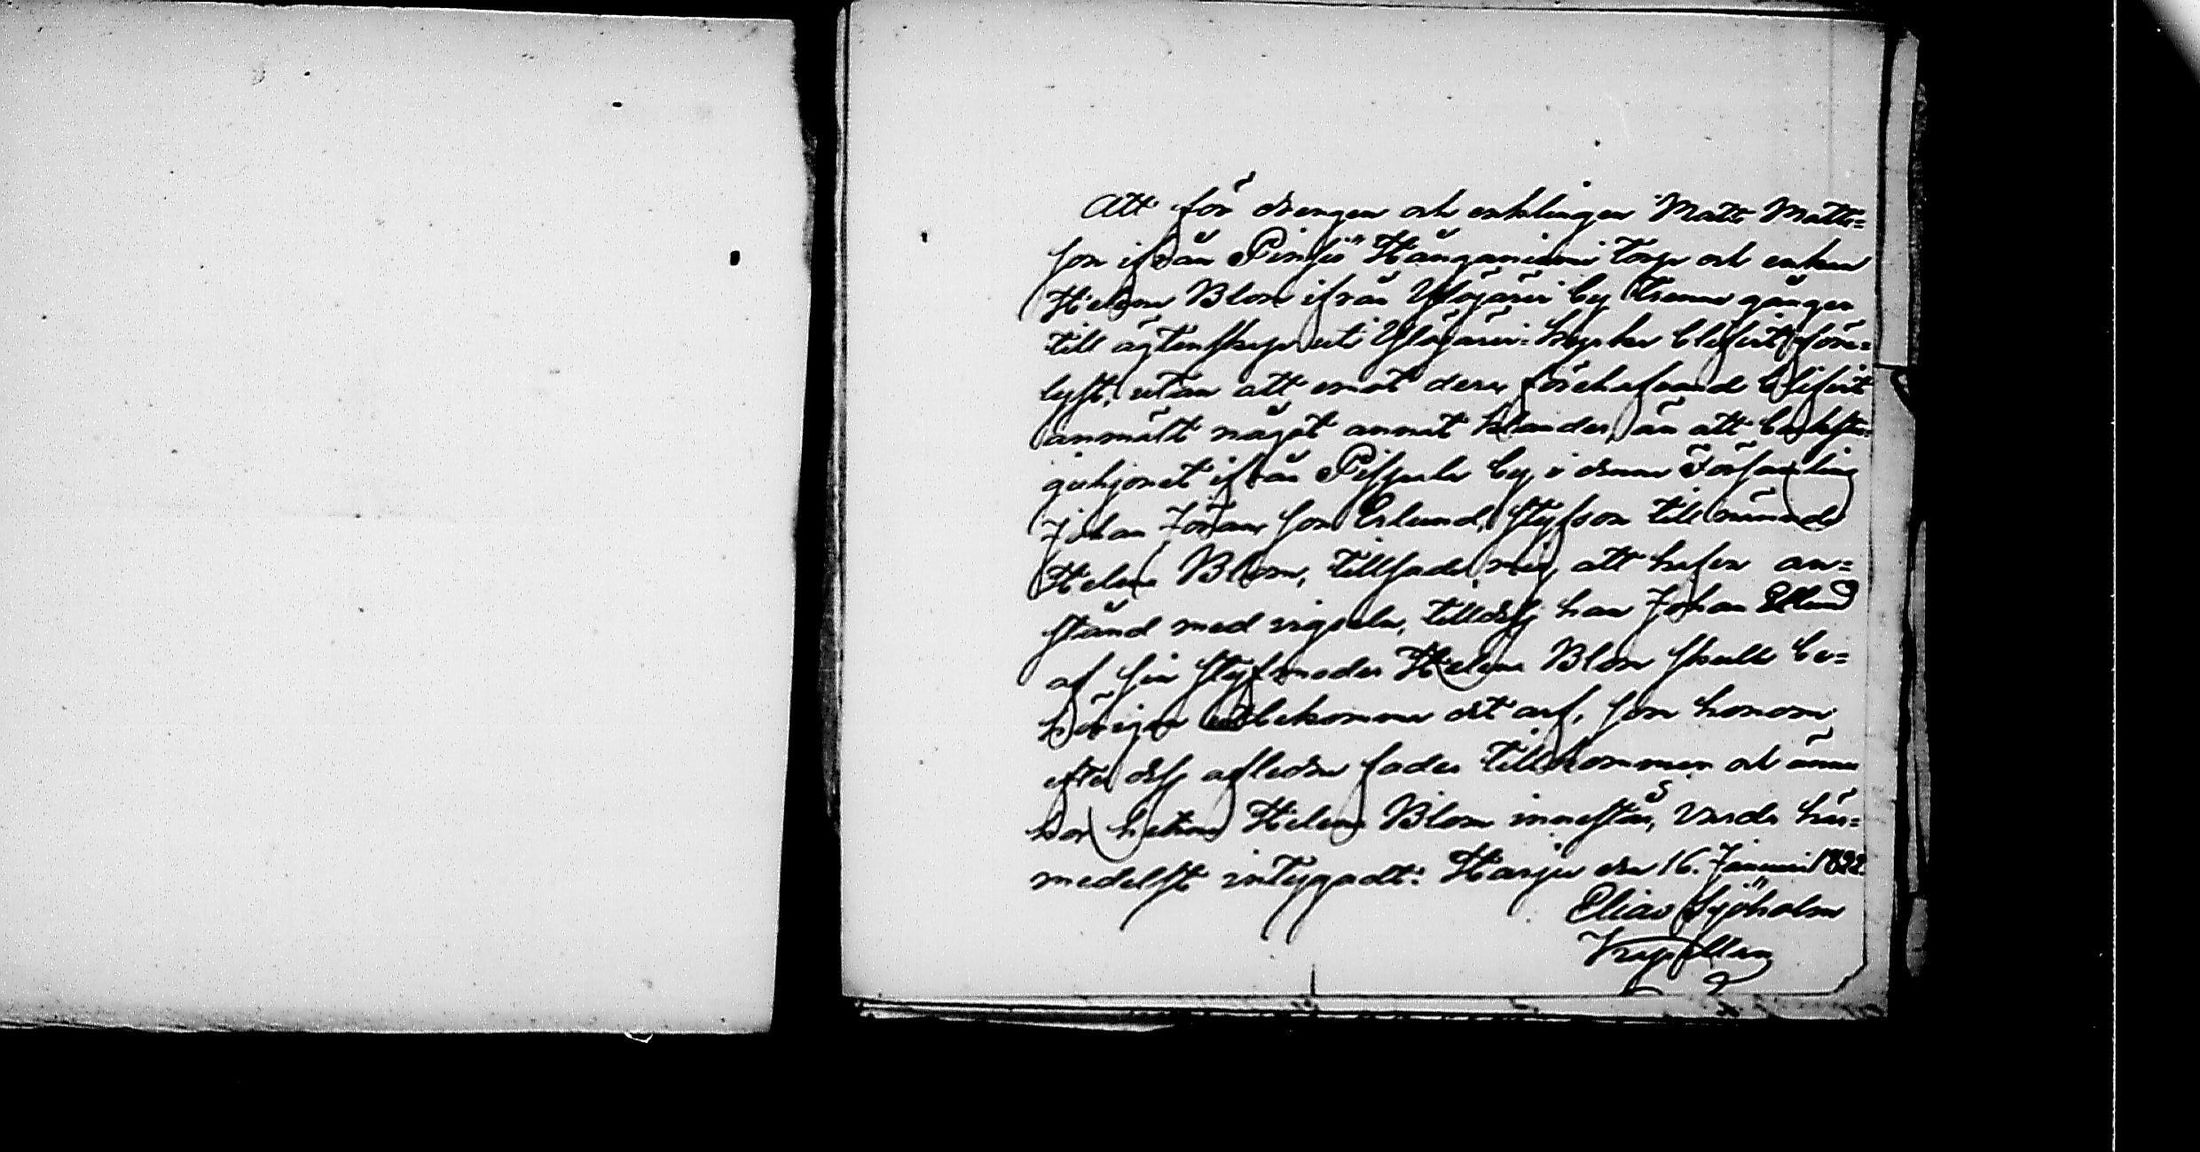 Att för drengen och enklingen Matts Matts=
son ifrån Pinsiö Hånganiemi Torp och enkan
Helena Blom ifrån Ylöjärvi by trenne gånger
till ägtenskap uti Ylöjärvi Kyrka blifvit före=
lyst, utan att emot deras förehafvand blifvit
anmält något annat klander, än att
ifrån Pispala by i denna Församling
Johan Johansson Erlund, styfson till nämnde
Helena Blom, tillsade mig att hafva an=
stånd med vigseln, tilldess han Johan Erlund
af sin styfmoder Helena Blom skulle be=
hörigen utbekomma det arf, som honom
efter dess afledne fader tillkommer och ännu
hos Helena Blom innestår, varder här=
medelst intygadt. Harju den 16. Januarii 1822.
Elias Sjöholm
Kapellan